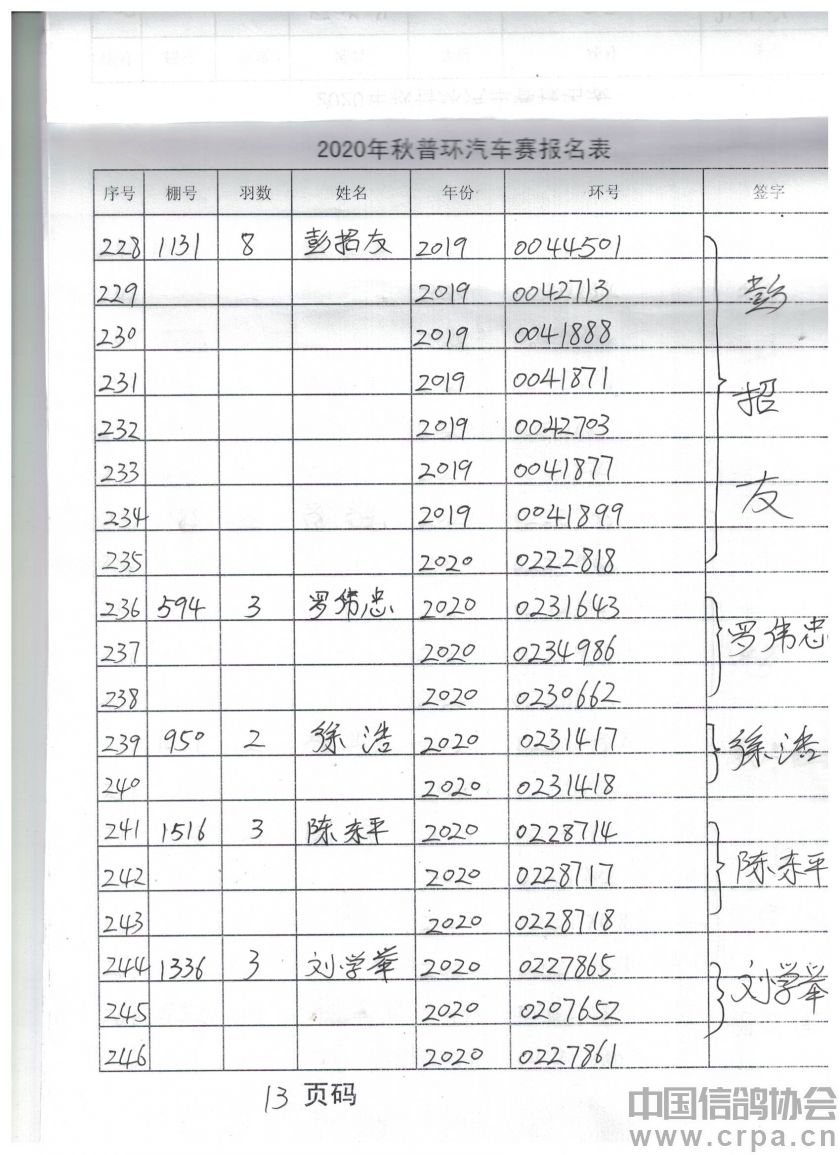 2020年秋普环汽车赛报名表
序号 棚号 羽数 姓名 年份 环号 签字
228 1131 8 彭招友 2019 0044501
229 2019 0042713
230 2019 0041888
231 2019 0041871
232 2019 0042703
233 2019 0041877
234 2019 0041899
235 2020 0222818
彭招友
236 594 3 罗伟忠 2020 0231643
237 2020 0234986 罗伟忠
238 2020 0230662
239 950 2 徐浩 2020 0231417 徐浩
240 2020 0231418
241 1516 3 陈东平 2020 0228714
242 2020 0228717 陈东平
243 2020 0228718
244 1336 3 刘学举 2020 0227865 刘学举
245 2020 0207652
246 2020 0227861
13 页码
中国信鸽协会
www.crpa.cn